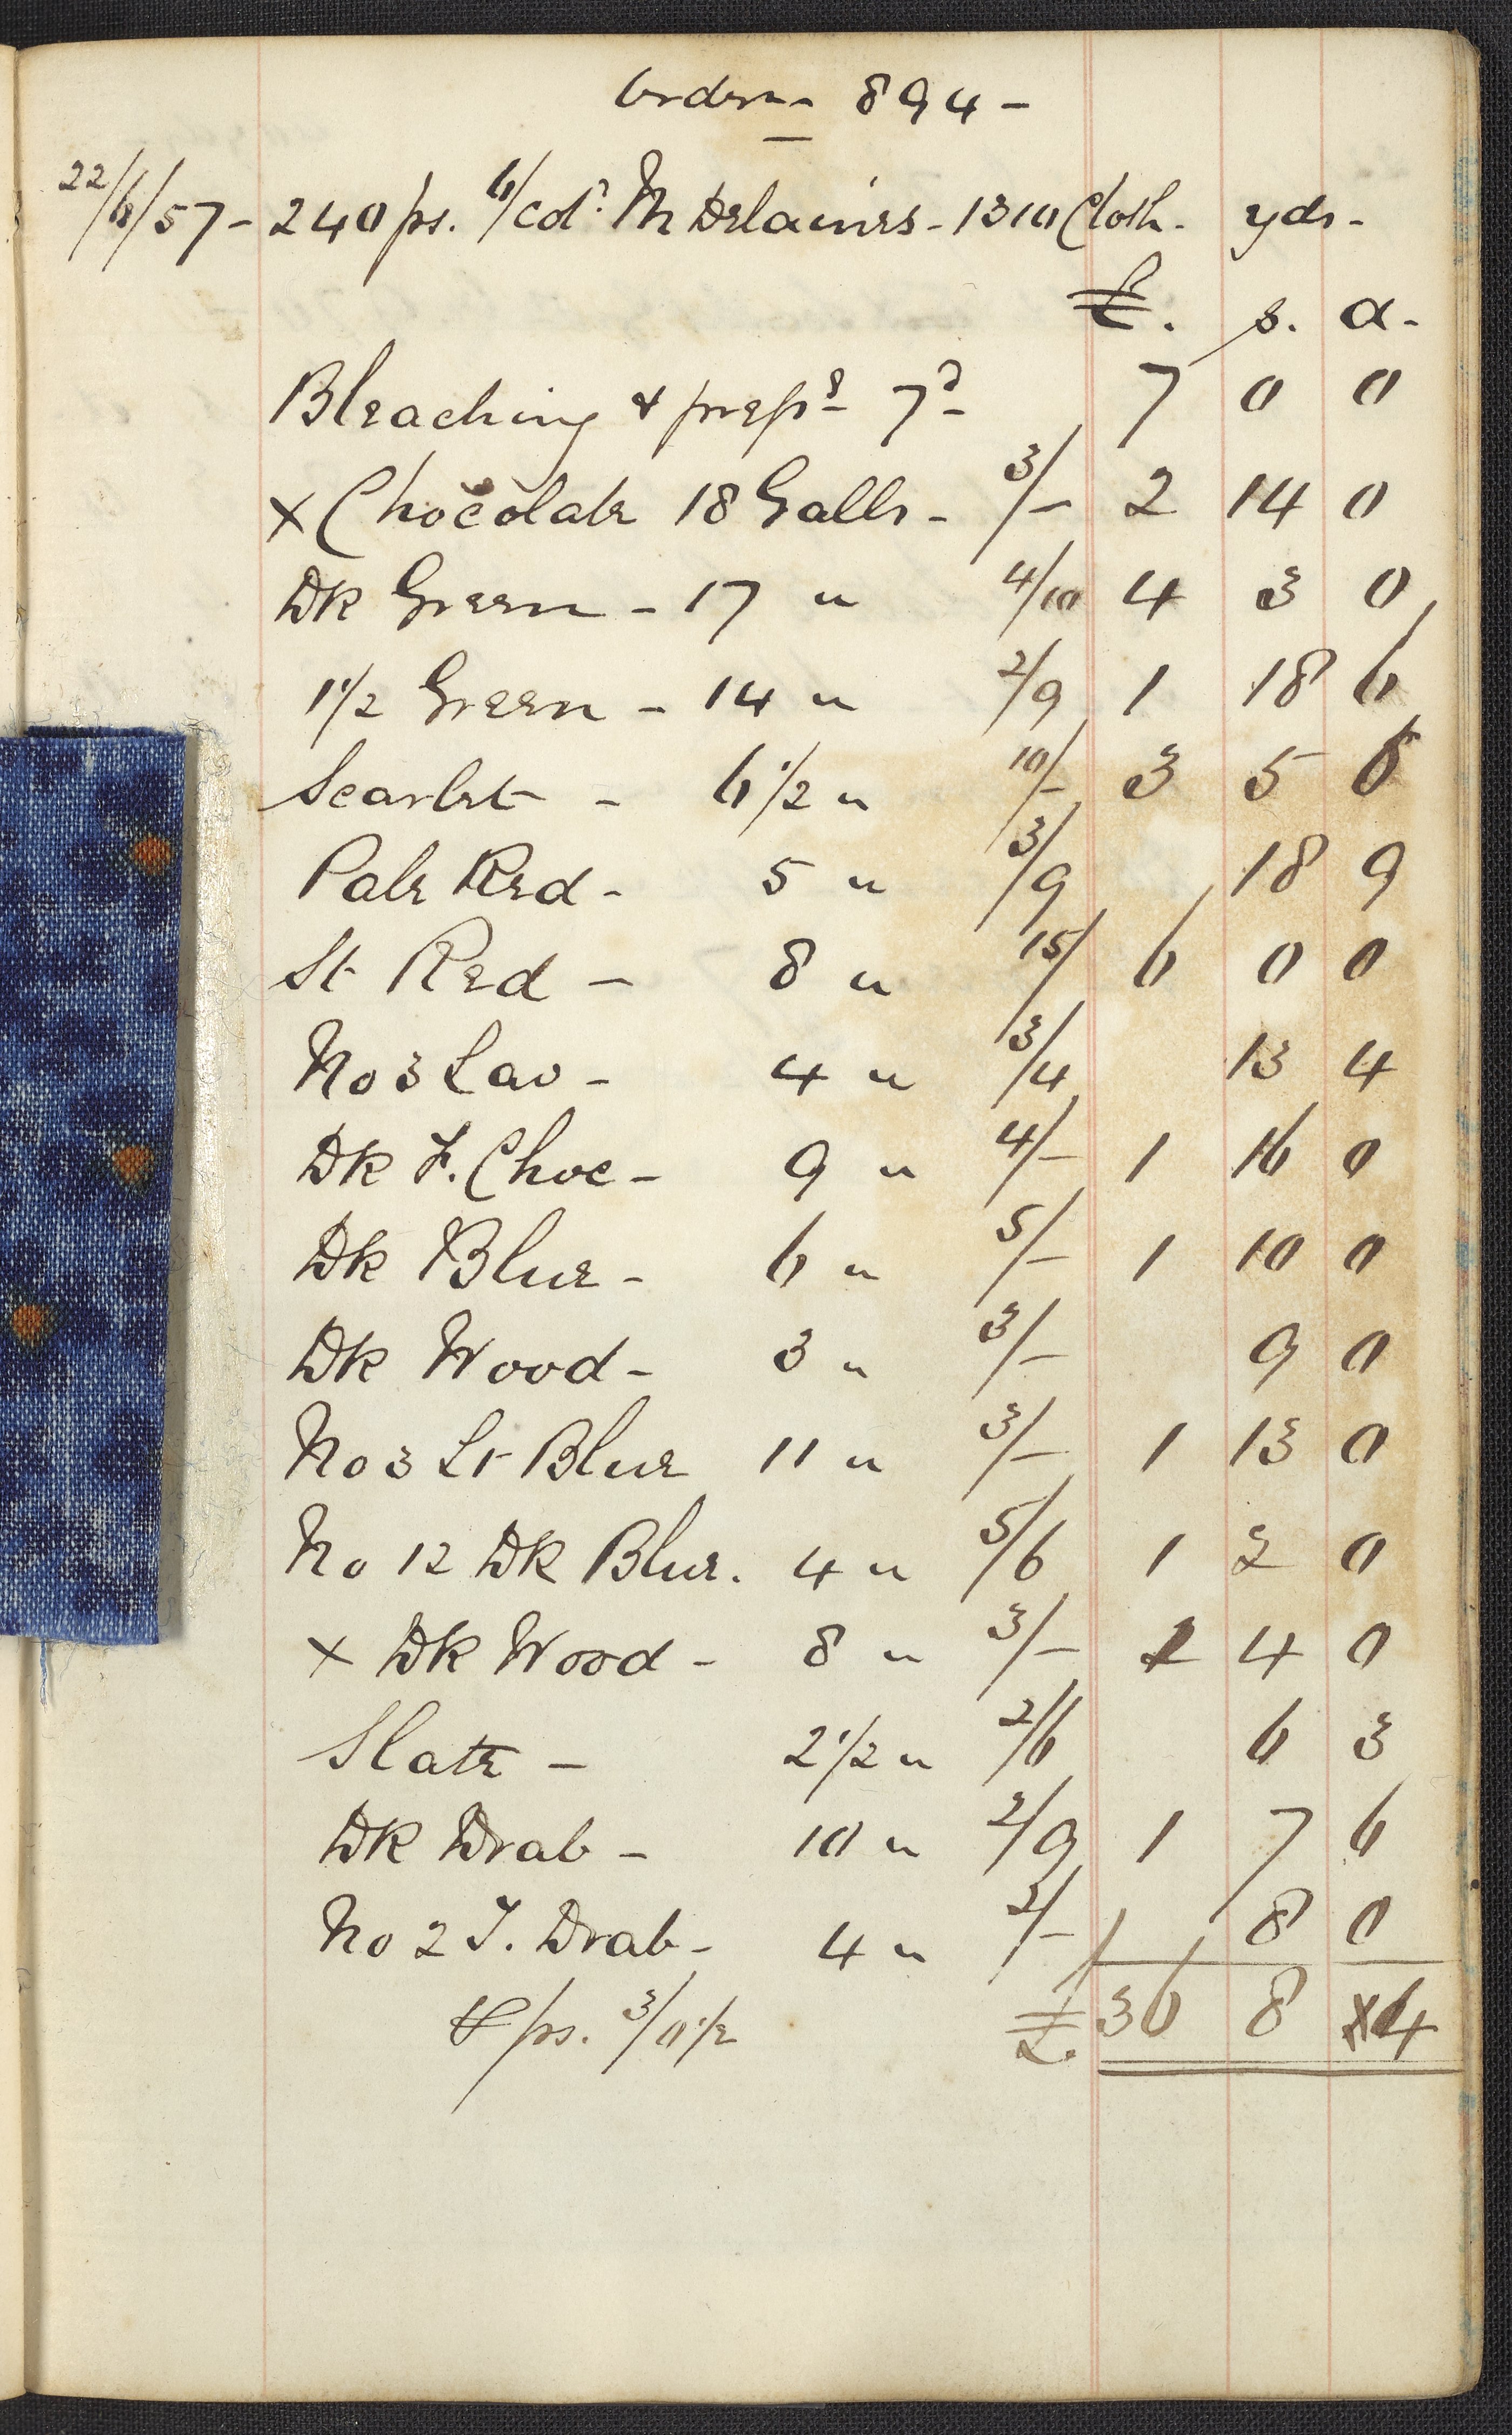 Order - 894 -
22/6/57 - 240 ps. 6/Cd. M Delaines - 1310 Cloth - yds -
£. s. d.
Bleaching & prepg 7d 7 0 0
x Chocolate 18 Galls - 3/- 2 14 0
Dk Green - 17 " 4/10 4 3 0
1/2 Green - 14 " 2/9 1 18 6
Scarlet - 6 1/2 " 10/- 3 5 0
Pale Red - 5 " 3/9 18 9
St Red - 8 " 15/ 6 0 0
No 3 Lav - 4 " 3/4 13 4
Dk F. Choc - 9 " 4/- 1 16 0
Dk Blue - 6 " 5/- 1 10 0
Dk Wood - 3 " 3/- 9 0
No 3 Lt Blue 11 " 3/- 1 13 0
No 12 Dk Blue. 4 " 5/6 1 2 0
x Dk Wood - 8 " 3/- 1 4 0
Slate - 2 1/2 " 2/6 6 3
Dk Drab - 10 " 2/9 1 7 6
No 2 F. Drab - 4 " 2/- 8 0
ps. 3/0 1/2 £ 36 8 4